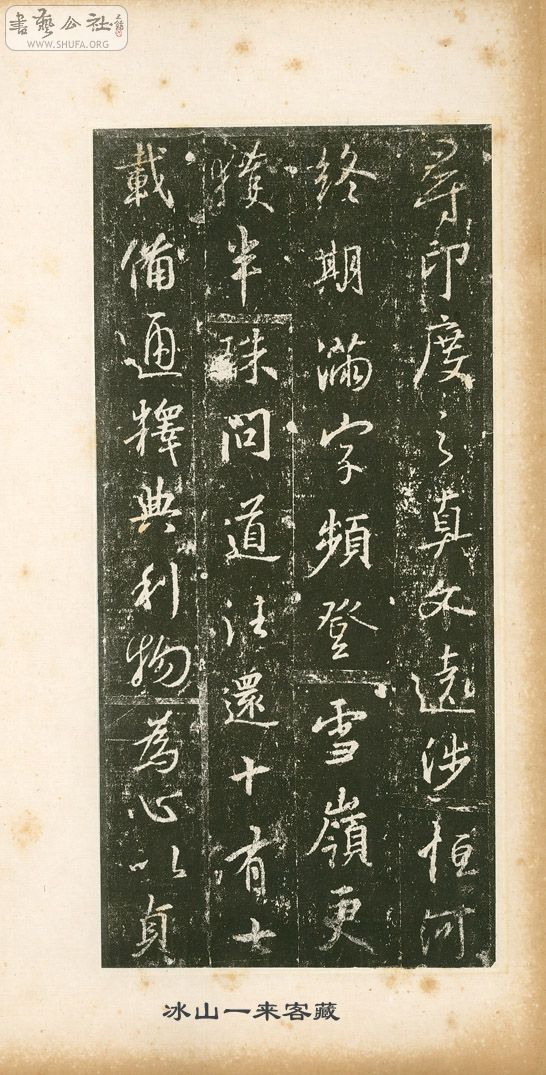 書藝公社
WWW.SHUFA.ORG
尋印度之真文遠涉恒河
終期滿字頻登雪嶺更
獲半珠問道法還十有七
載備通釋典利物為心以貞
冰山一来客藏